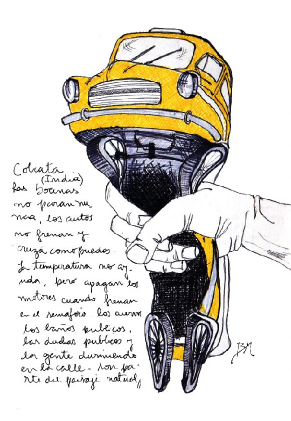 Colcata
(India)
Las bocinas
no paran nu
nca, los autos
no frenan y
cruza como puedas
La temperatura no ay
uda, pero apagan los
motores cuando frenan
en el semaforo los
los baños publicos,
las duchas publicas y
la gente durmiendo
en la calle. son pa
rte del paisaje natural,,
BM